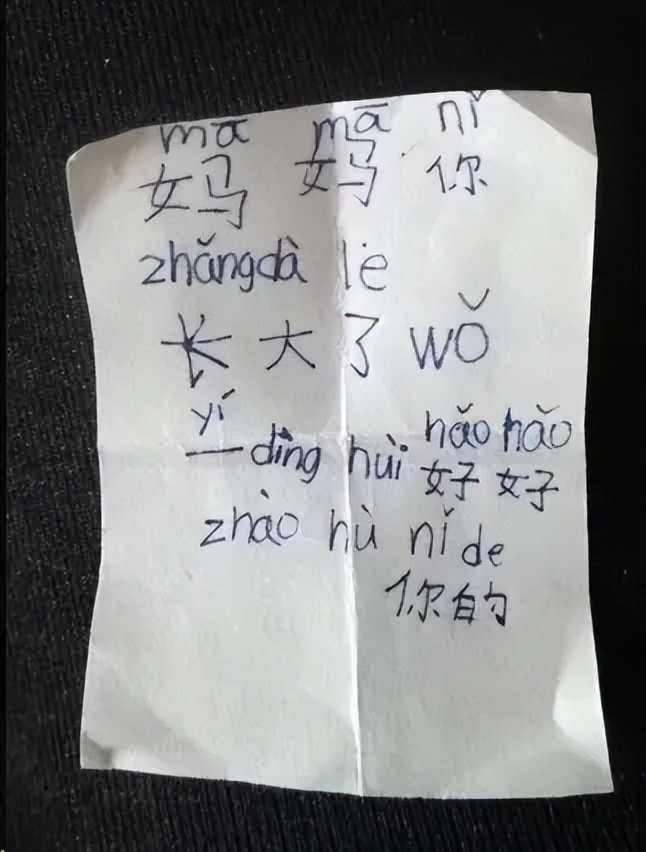 mā mā nǐ
妈 妈 你
zhǎngdà le
长 大 了 wǒ
yí hǎo hǎo
一 dìng hùi 好 好
zhào hù nǐ de
你 的